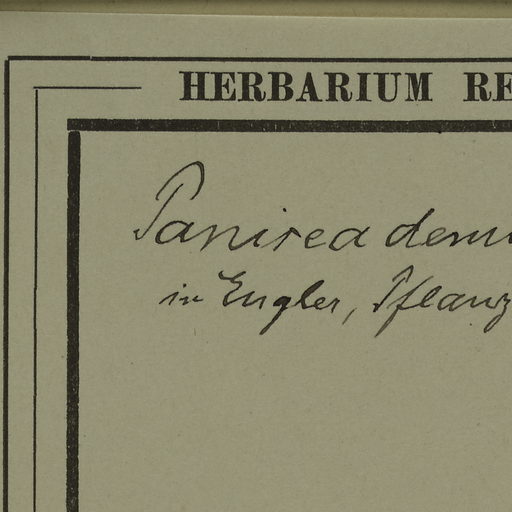 HERBARIUM RE
Panisea demi
in Engler, Pflanz